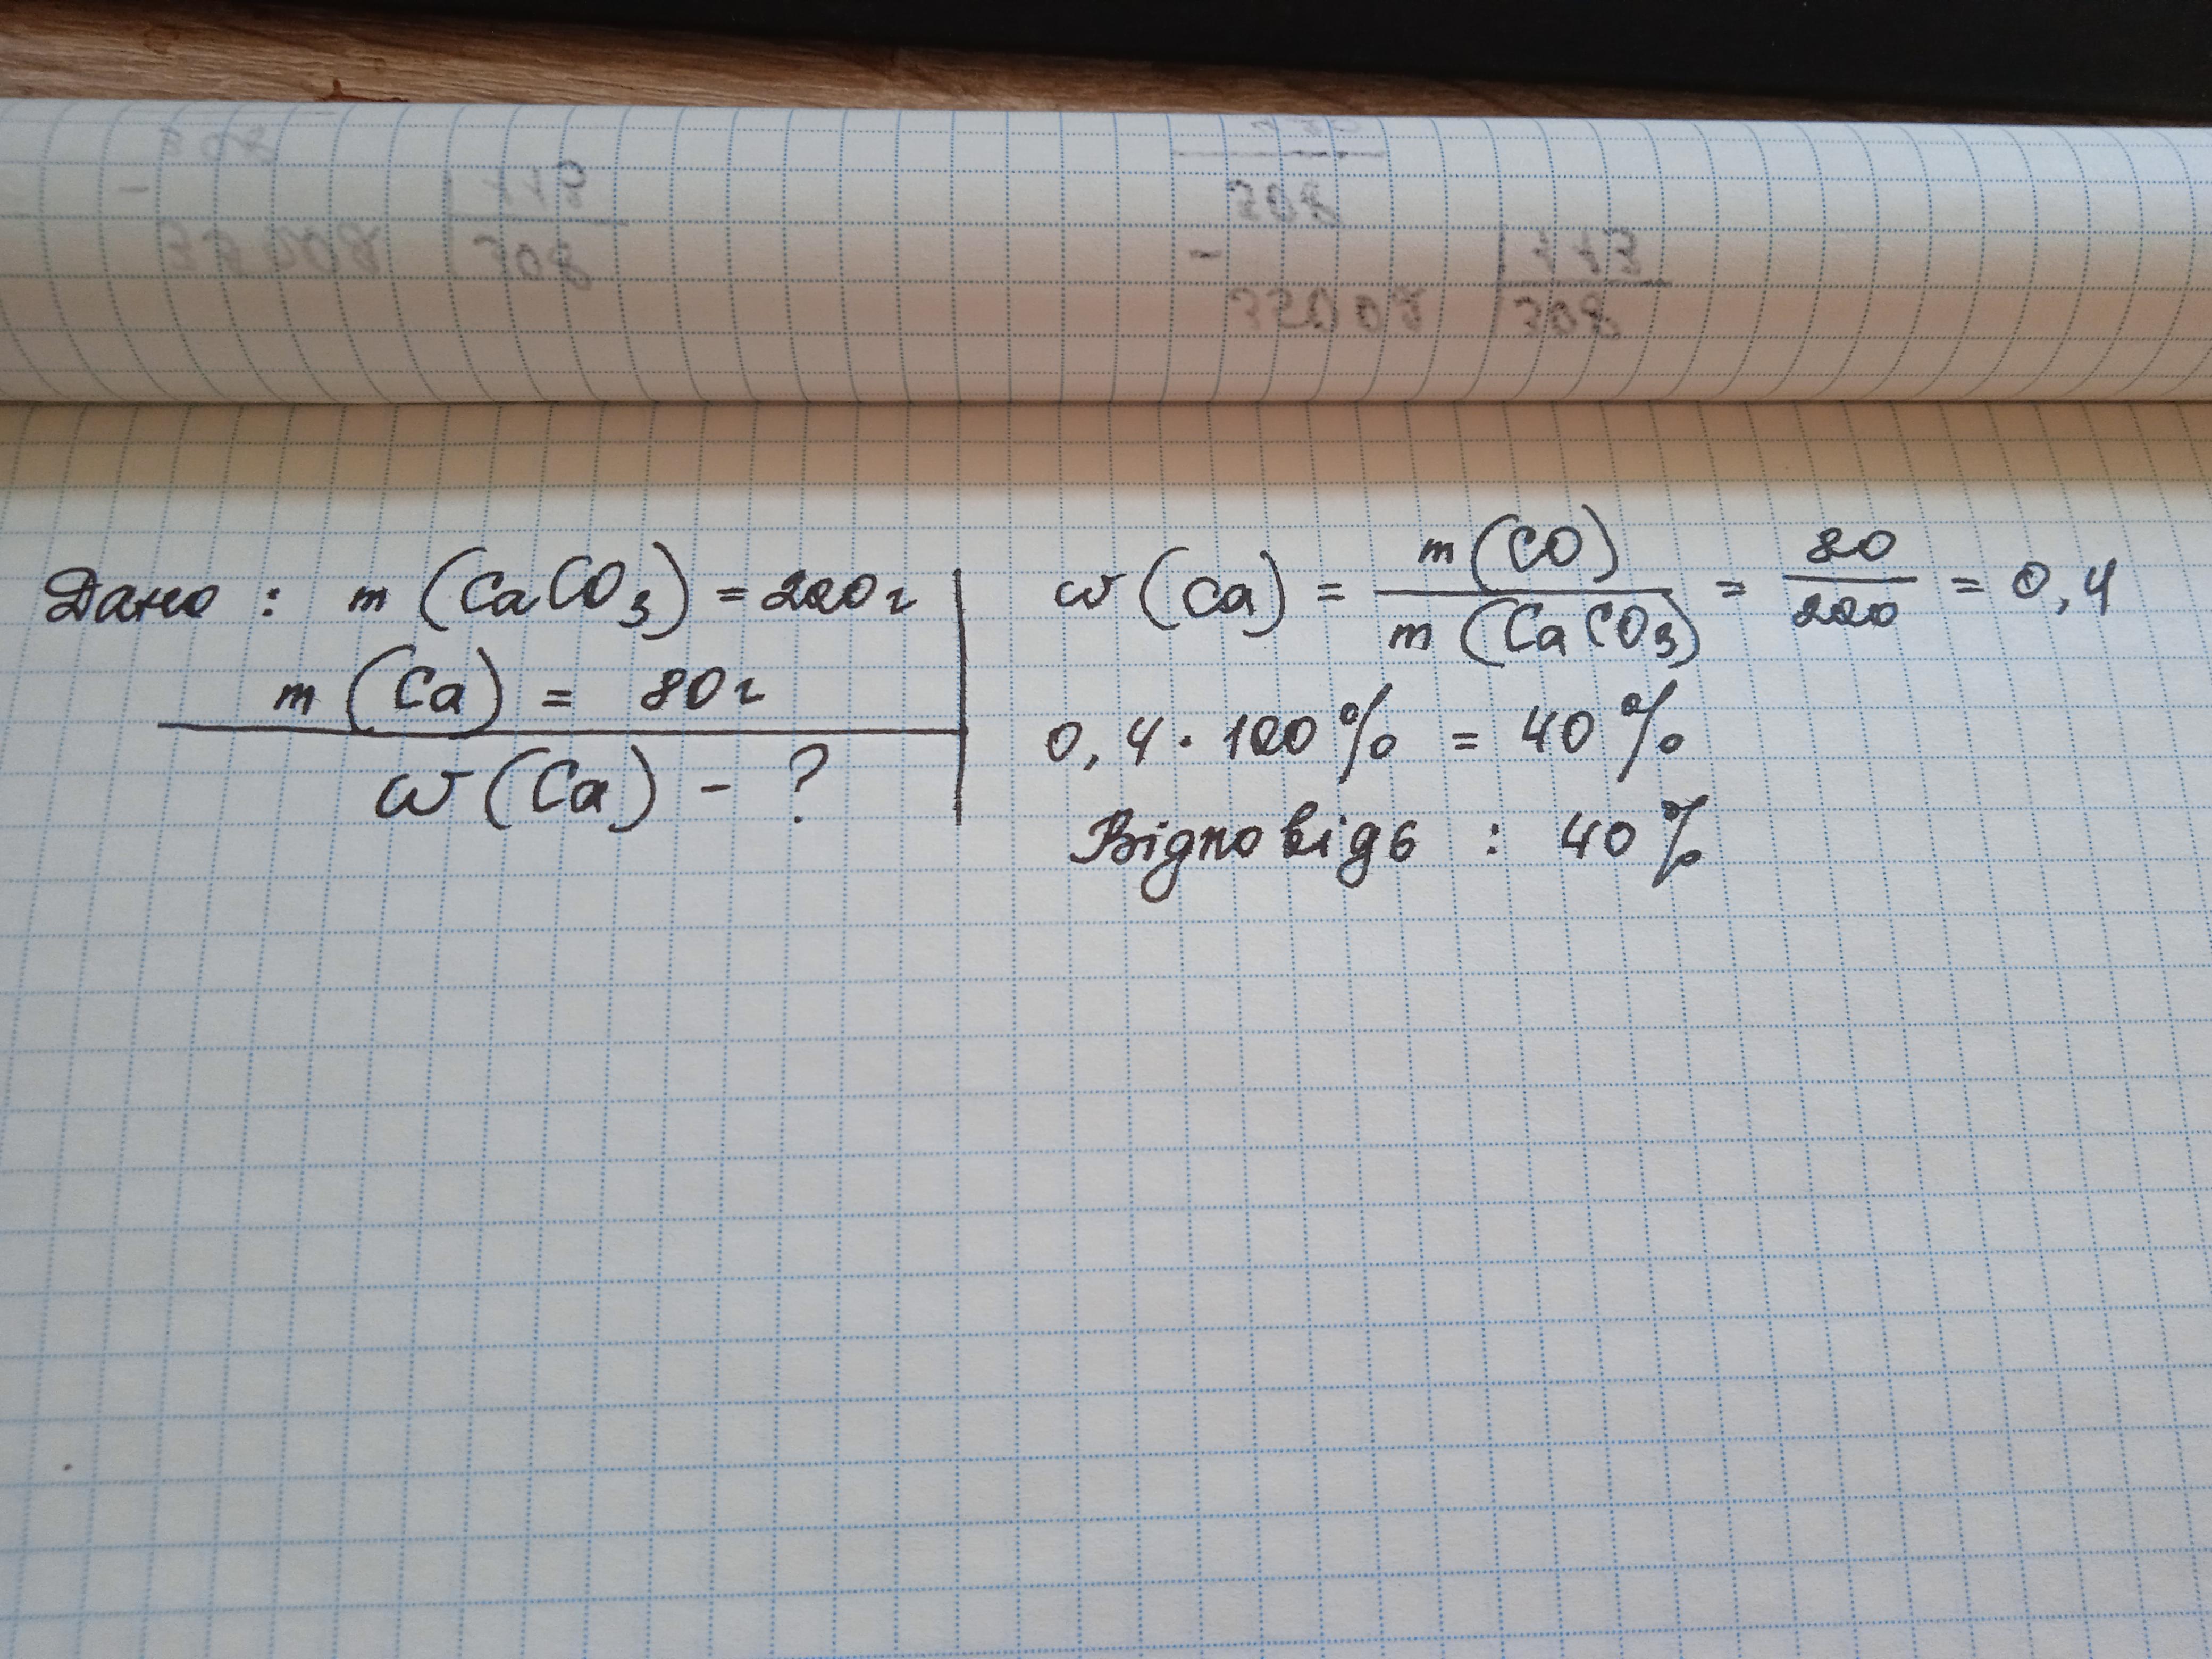 Дано : m (CaCO₃) = 200 г
m (Ca) = 80 г
w (Ca) - ?
w (Ca) = m (CO) / m (CaCO₃) = 80 / 200 = 0,4
0,4 · 100 % = 40 %
Відповідь : 40 %